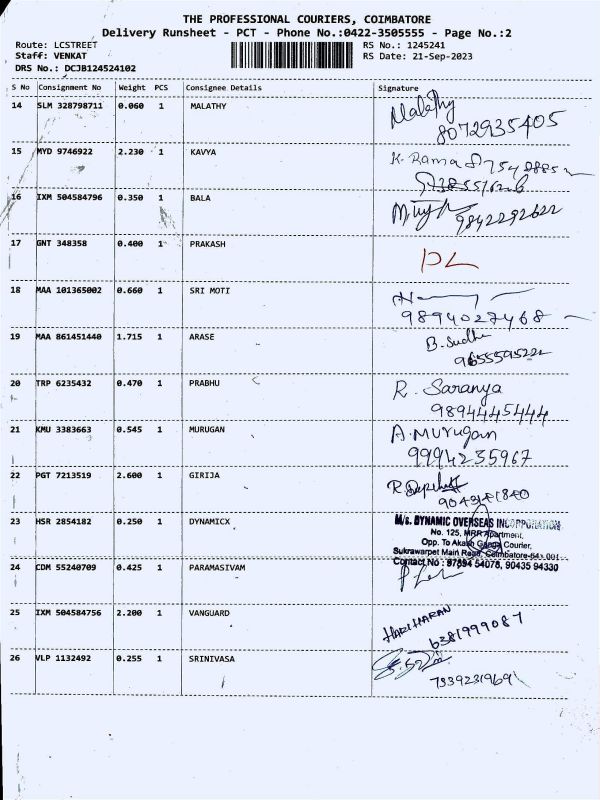 THE PROFESSIONAL COURIERS, COIMBATORE
Delivery Runsheet - PCT - Phone No.:0422-3505555 - Page No.:2
Route: LCSTREET RS No.: 1245241
Staff: VENKAT RS Date: 21-Sep-2023
DRS No.: DCJB124524102
S No Consignment No Weight PCS Consignee Details Signature
14 SLM 328798711 0.060 1 MALATHY Malathy
8072935405
15 MYD 9746922 2.230 1 KAVYA K. Rama
16 IXM 504584796 0.350 1 BALA
9842292622
17 GNT 348358 0.400 1 PRAKASH
18 MAA 101365002 0.660 1 SRI MOTI
9894027468
19 MAA 861451440 1.715 1 ARASE B. Sudha
9655595222
20 TRP 6235432 0.470 1 PRABHU R. Saranya
9894445444
21 KMU 3383663 0.545 1 MURUGAN A. Murugan
9994235967
22 PGT 7213519 2.600 1 GIRIJA R.
23 HSR 2854182 0.250 1 DYNAMICX M/s. DYNAMIC OVERSEAS INCORPORATION
No. 125, MRR Apartment,
Opp. To Akash Ganga Courier,
Sukrawarpet Main Road, Coimbatore-641 001.
Contact No : 97894 54078, 90435 94330
24 CDM 55240709 0.425 1 PARAMASIVAM
25 IXM 504584756 2.200 1 VANGUARD HARIHARAN
6381999087
26 VLP 1132492 0.255 1 SRINIVASA
7339231969